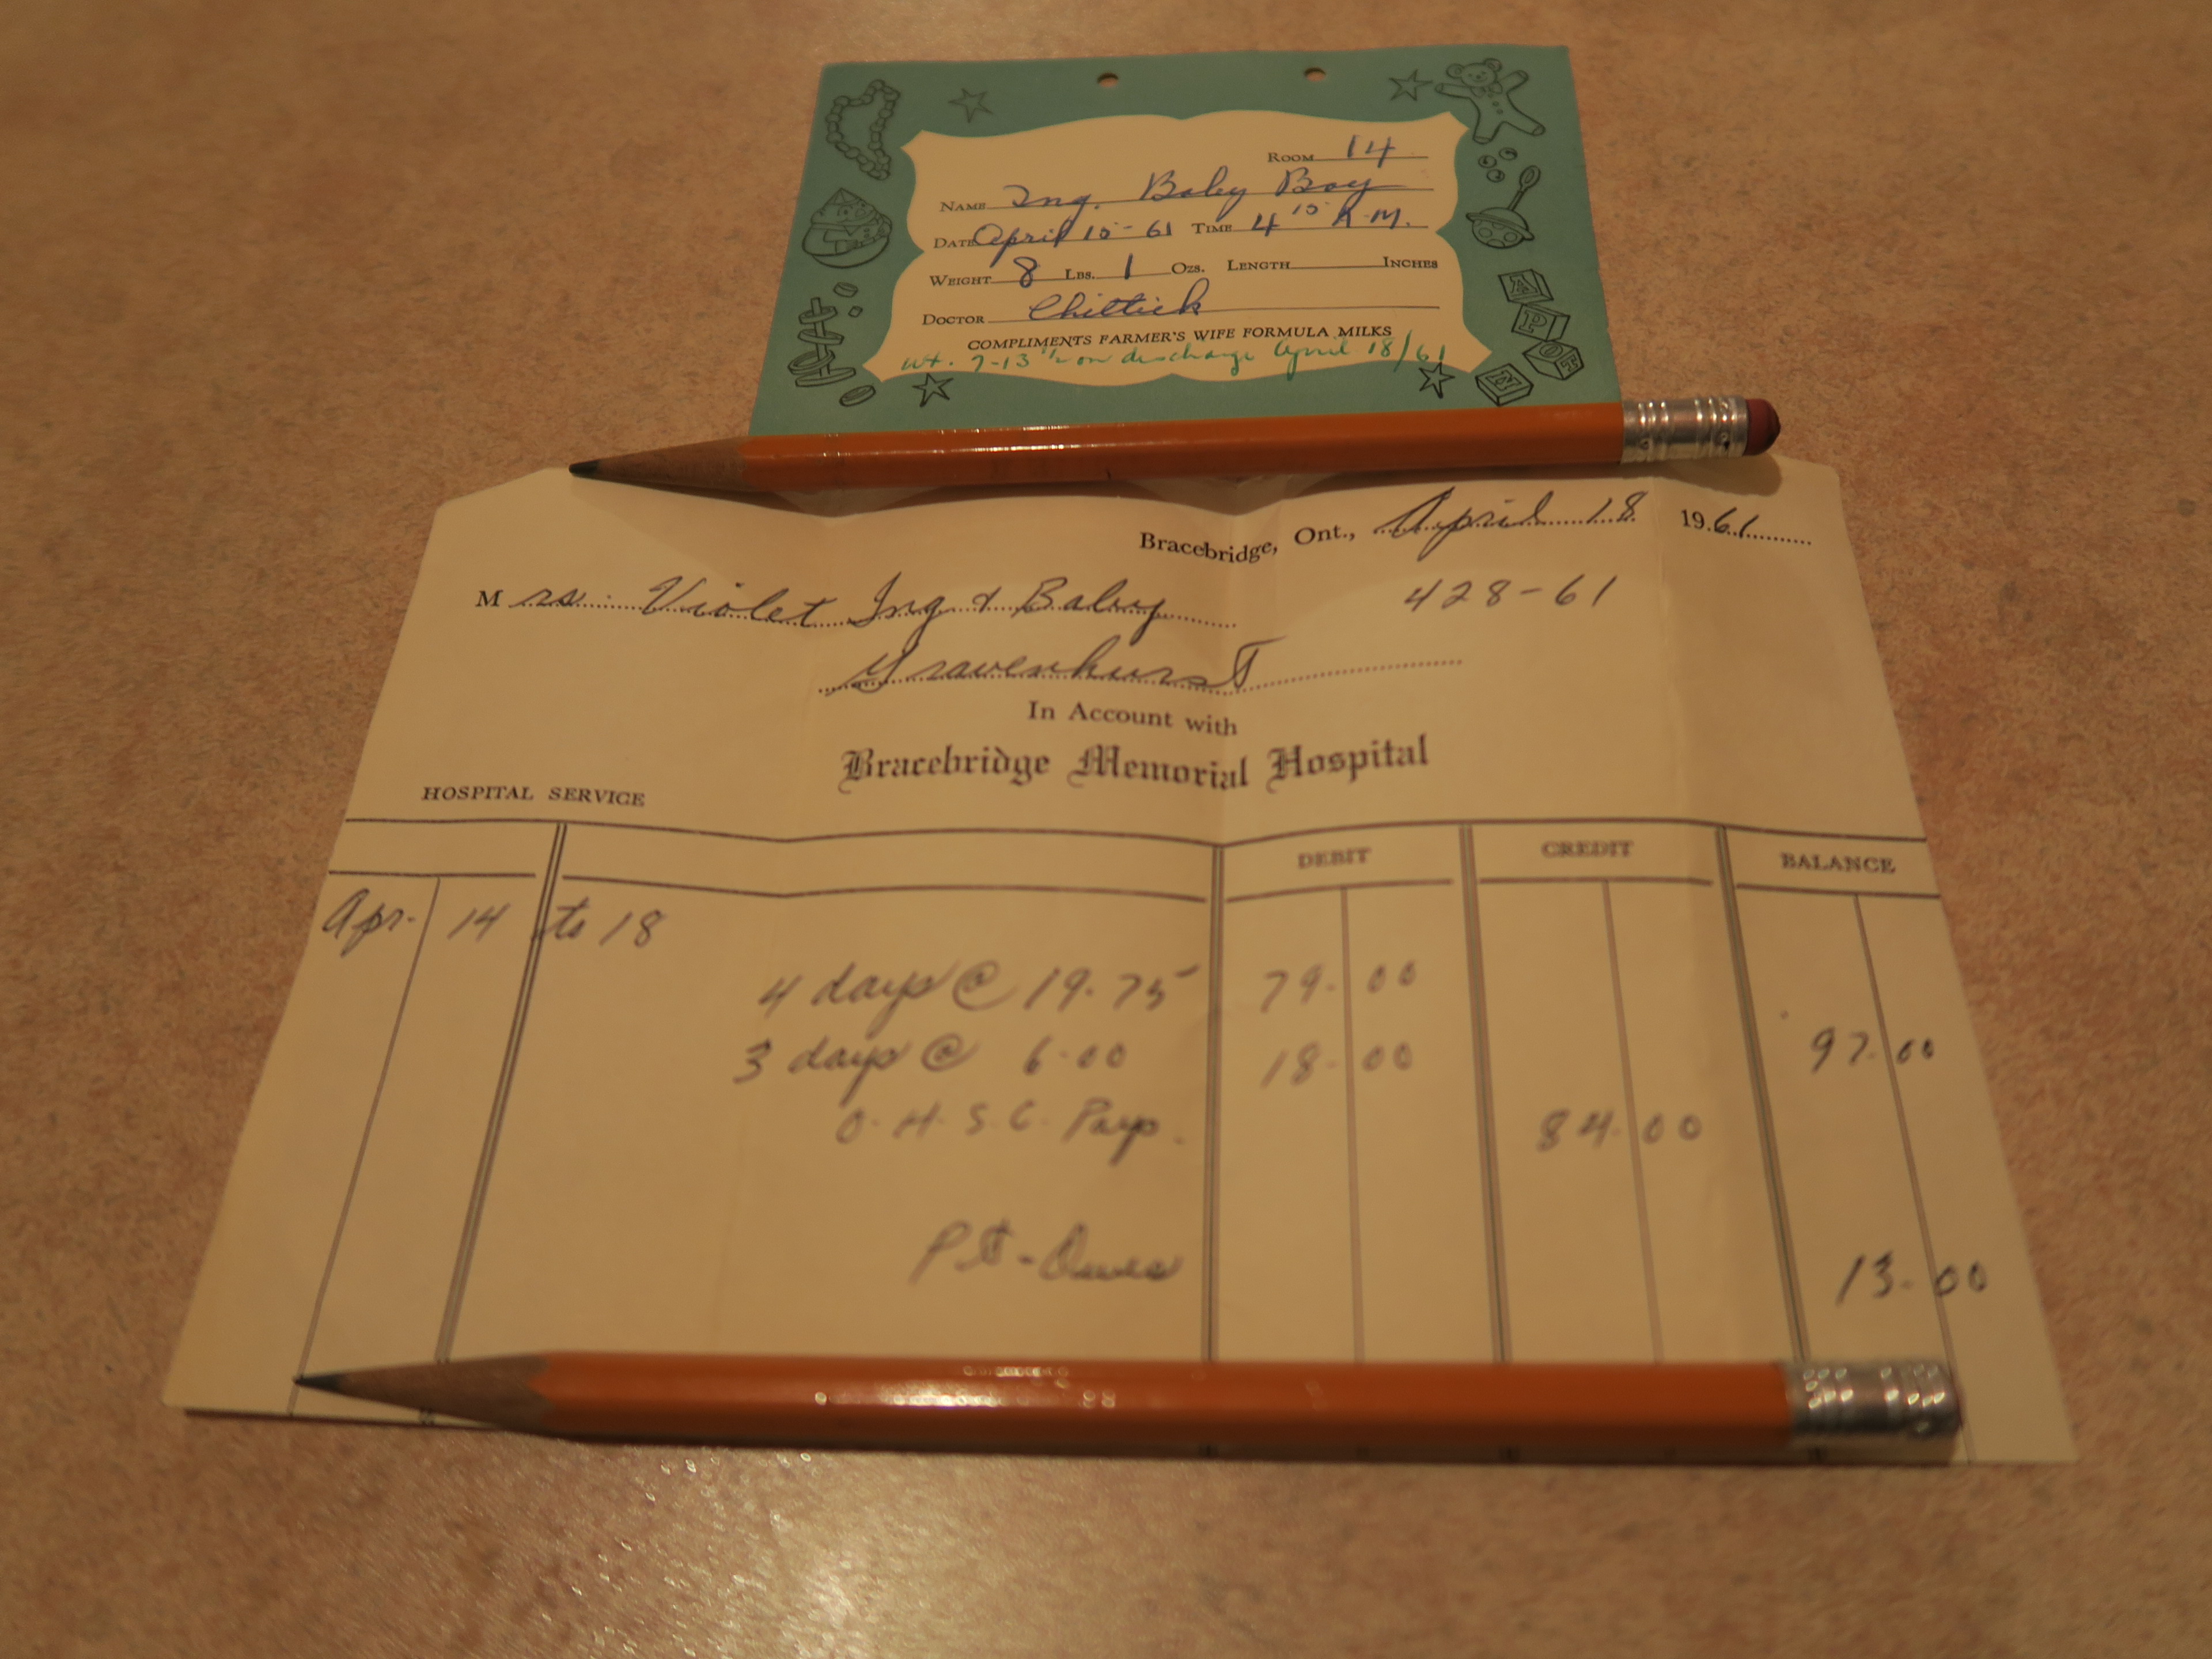 ROOM 14
NAME Ing. Baby Boy
DATE April 15-61 TIME 4 15 A.M.
WEIGHT 8 LBS. 1 OZS. LENGTH INCHES
DOCTOR Chittick
COMPLIMENTS FARMER'S WIFE FORMULA MILKS
wt. 7-13 1/2 on discharge April 18/61
A
P
O T
N
Bracebridge, Ont., April 18 1961
Mrs. Violet Ing & Baby 428-61
Gravenhurst
In Account with
Bracebridge Memorial Hospital
HOSPITAL SERVICE
DEBIT CREDIT BALANCE
Apr. 14 to 18
4 days @ 19.75 79.00
3 days @ 6.00 18.00 97.00
O.H.S.C. Pays. 84.00
Pt-Owes 13.00